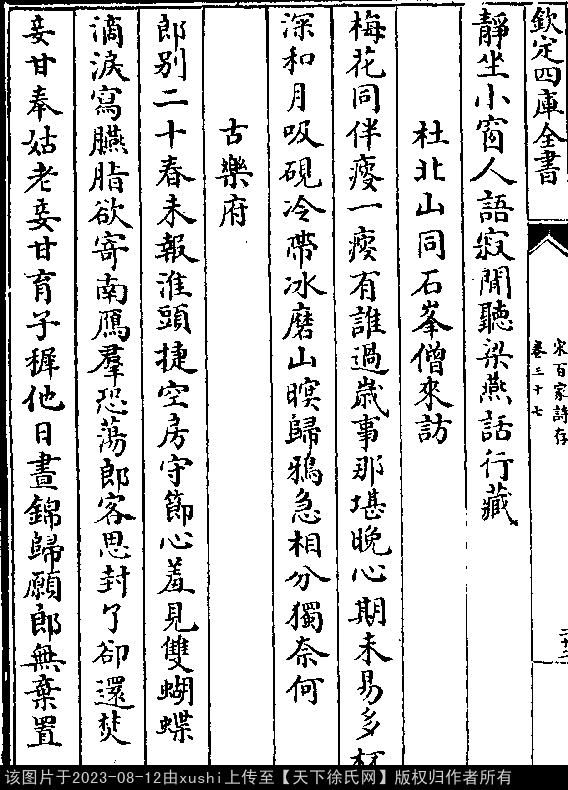 欽定四庫全書
宋百家詩存
卷三十七
靜坐小窗人語寂閒聽梁燕話行藏
杜北山同石峯僧來訪
梅花同伴瘦一瘦有誰過歲事那堪晚心期未易多杯
深和月吸硯冷帶冰磨山暝歸鴉急相分獨奈何
古樂府
郎别二十春未報淮頭捷空房守節心羞見雙蝴蝶
滴淚寫臙脂欲寄南鴈羣恐蕩郎客思封了卻還焚
妾甘奉姑老妾甘育子穉他日晝錦歸願郎無棄置
该图片于2023-08-12由xushi上传至【天下徐氏网】版权归作者所有